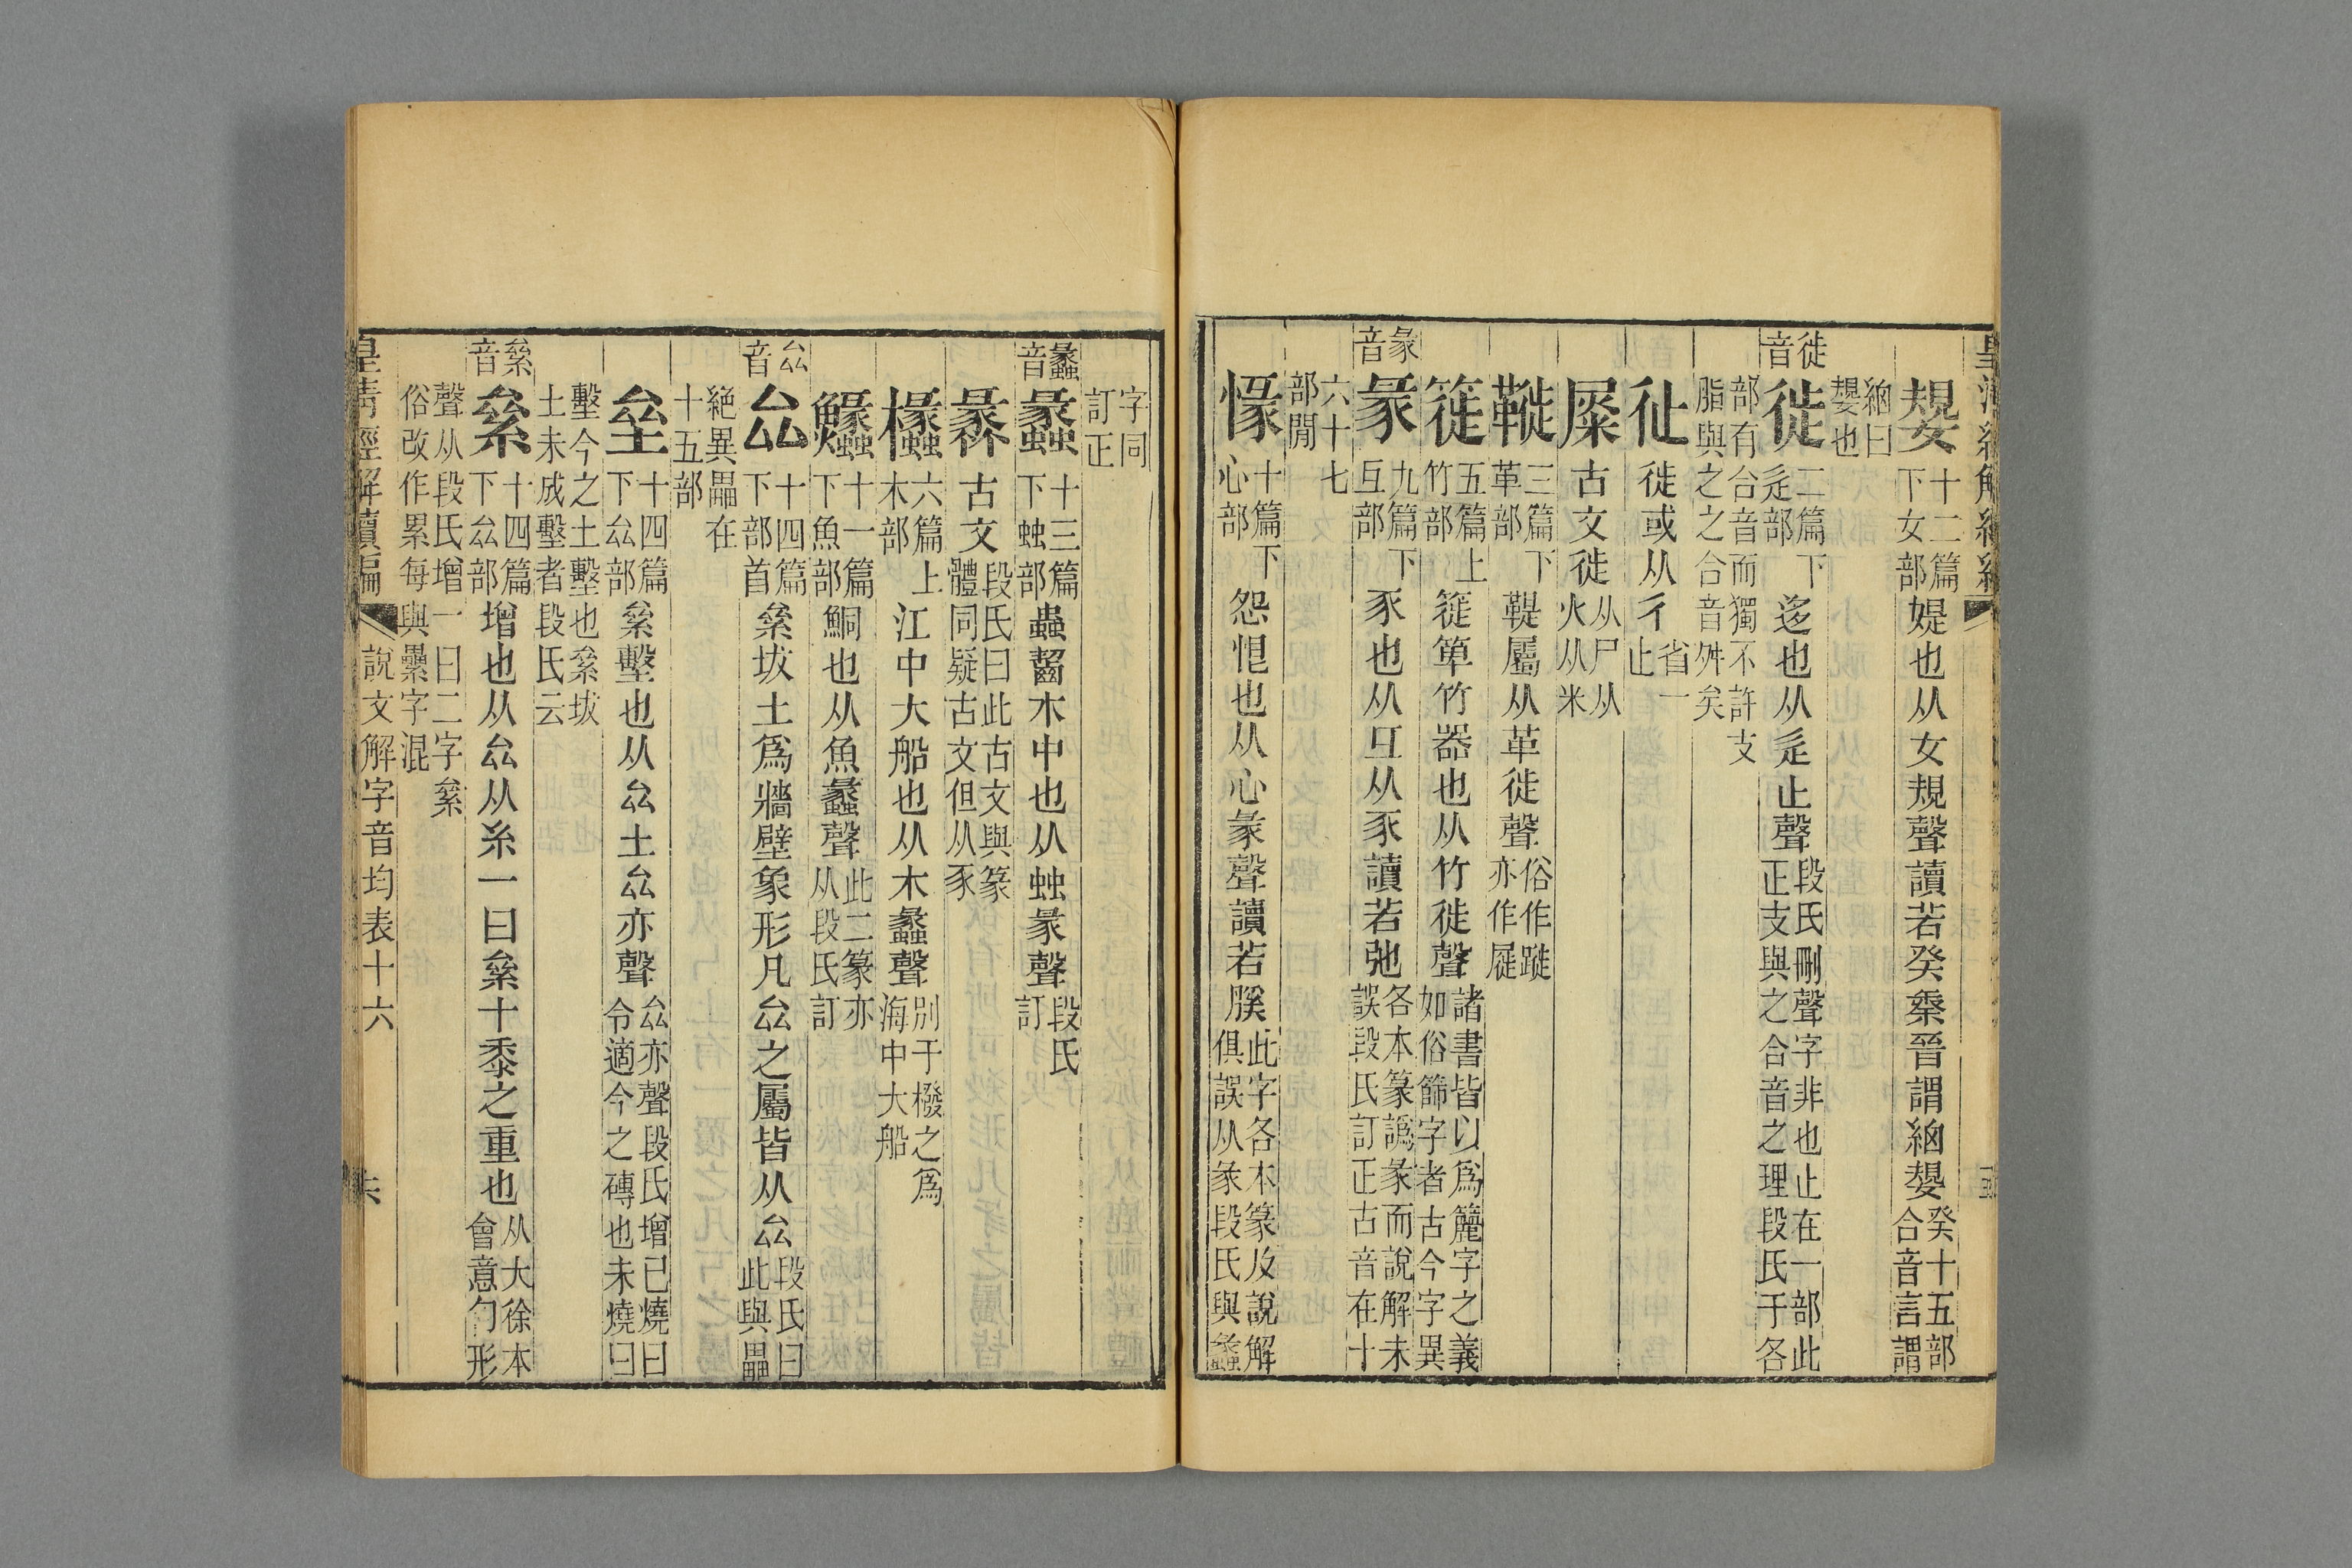 嫢十二篇下女部媞也从女規聲讀若癸秦晉謂細嫢癸十五部合音言謂
細曰嫢也
徙音
徙二篇下辵部迻也从辵止聲段氏刪聲字非也止在一部此正支與之合音之理段氏于各
部有合音而獨不許支脂與之之合音舛矣
𢓊徙或从彳省一止
𡲴古文徙从尸从火从米
鞾三篇下革部鞮屬从革徙聲俗作蹝亦作屣
簁五篇上竹部簁箄竹器也从竹徙聲諸書皆以爲簏字之義如俗篩字者古今字異
彖音
彖九篇下彑部豕也从彑从豕讀若弛各本篆譌彖而說解未誤段氏訂正古音在十
六十七部閒
㥟十篇下心部怨悒也从心彖聲讀若膎此字各本篆及說解俱誤从彖段氏與蠡
字同訂正
蠡音
蠡十三篇下䖵部蟲齧木中也从䖵彖聲段氏訂
𧓽古文段氏曰此古文與篆體同疑古文但从豕
欚六篇上木部江中大船也从木蠡聲別于橃之爲海中大船
鱺十一篇下魚部鮦也从魚蠡聲此二篆亦从段氏訂
厽音
厽十四篇下部首絫坺土爲牆壁象形凡厽之屬皆从厽段氏曰此與畾
絕異畾在十五部
垒十四篇下厽部絫墼也从厽土厽亦聲厽亦聲段氏增已燒曰令適今之磚也未燒曰
墼今之土墼也絫坺土未成墼者段氏云
絫音
絫十四篇下厽部增也从厽从糸一曰絫十黍之重也从大徐本會意勹形
聲从段氏增一曰二字絫俗改作累每與纍字混
皇清經解續編
說文解字音均表十六